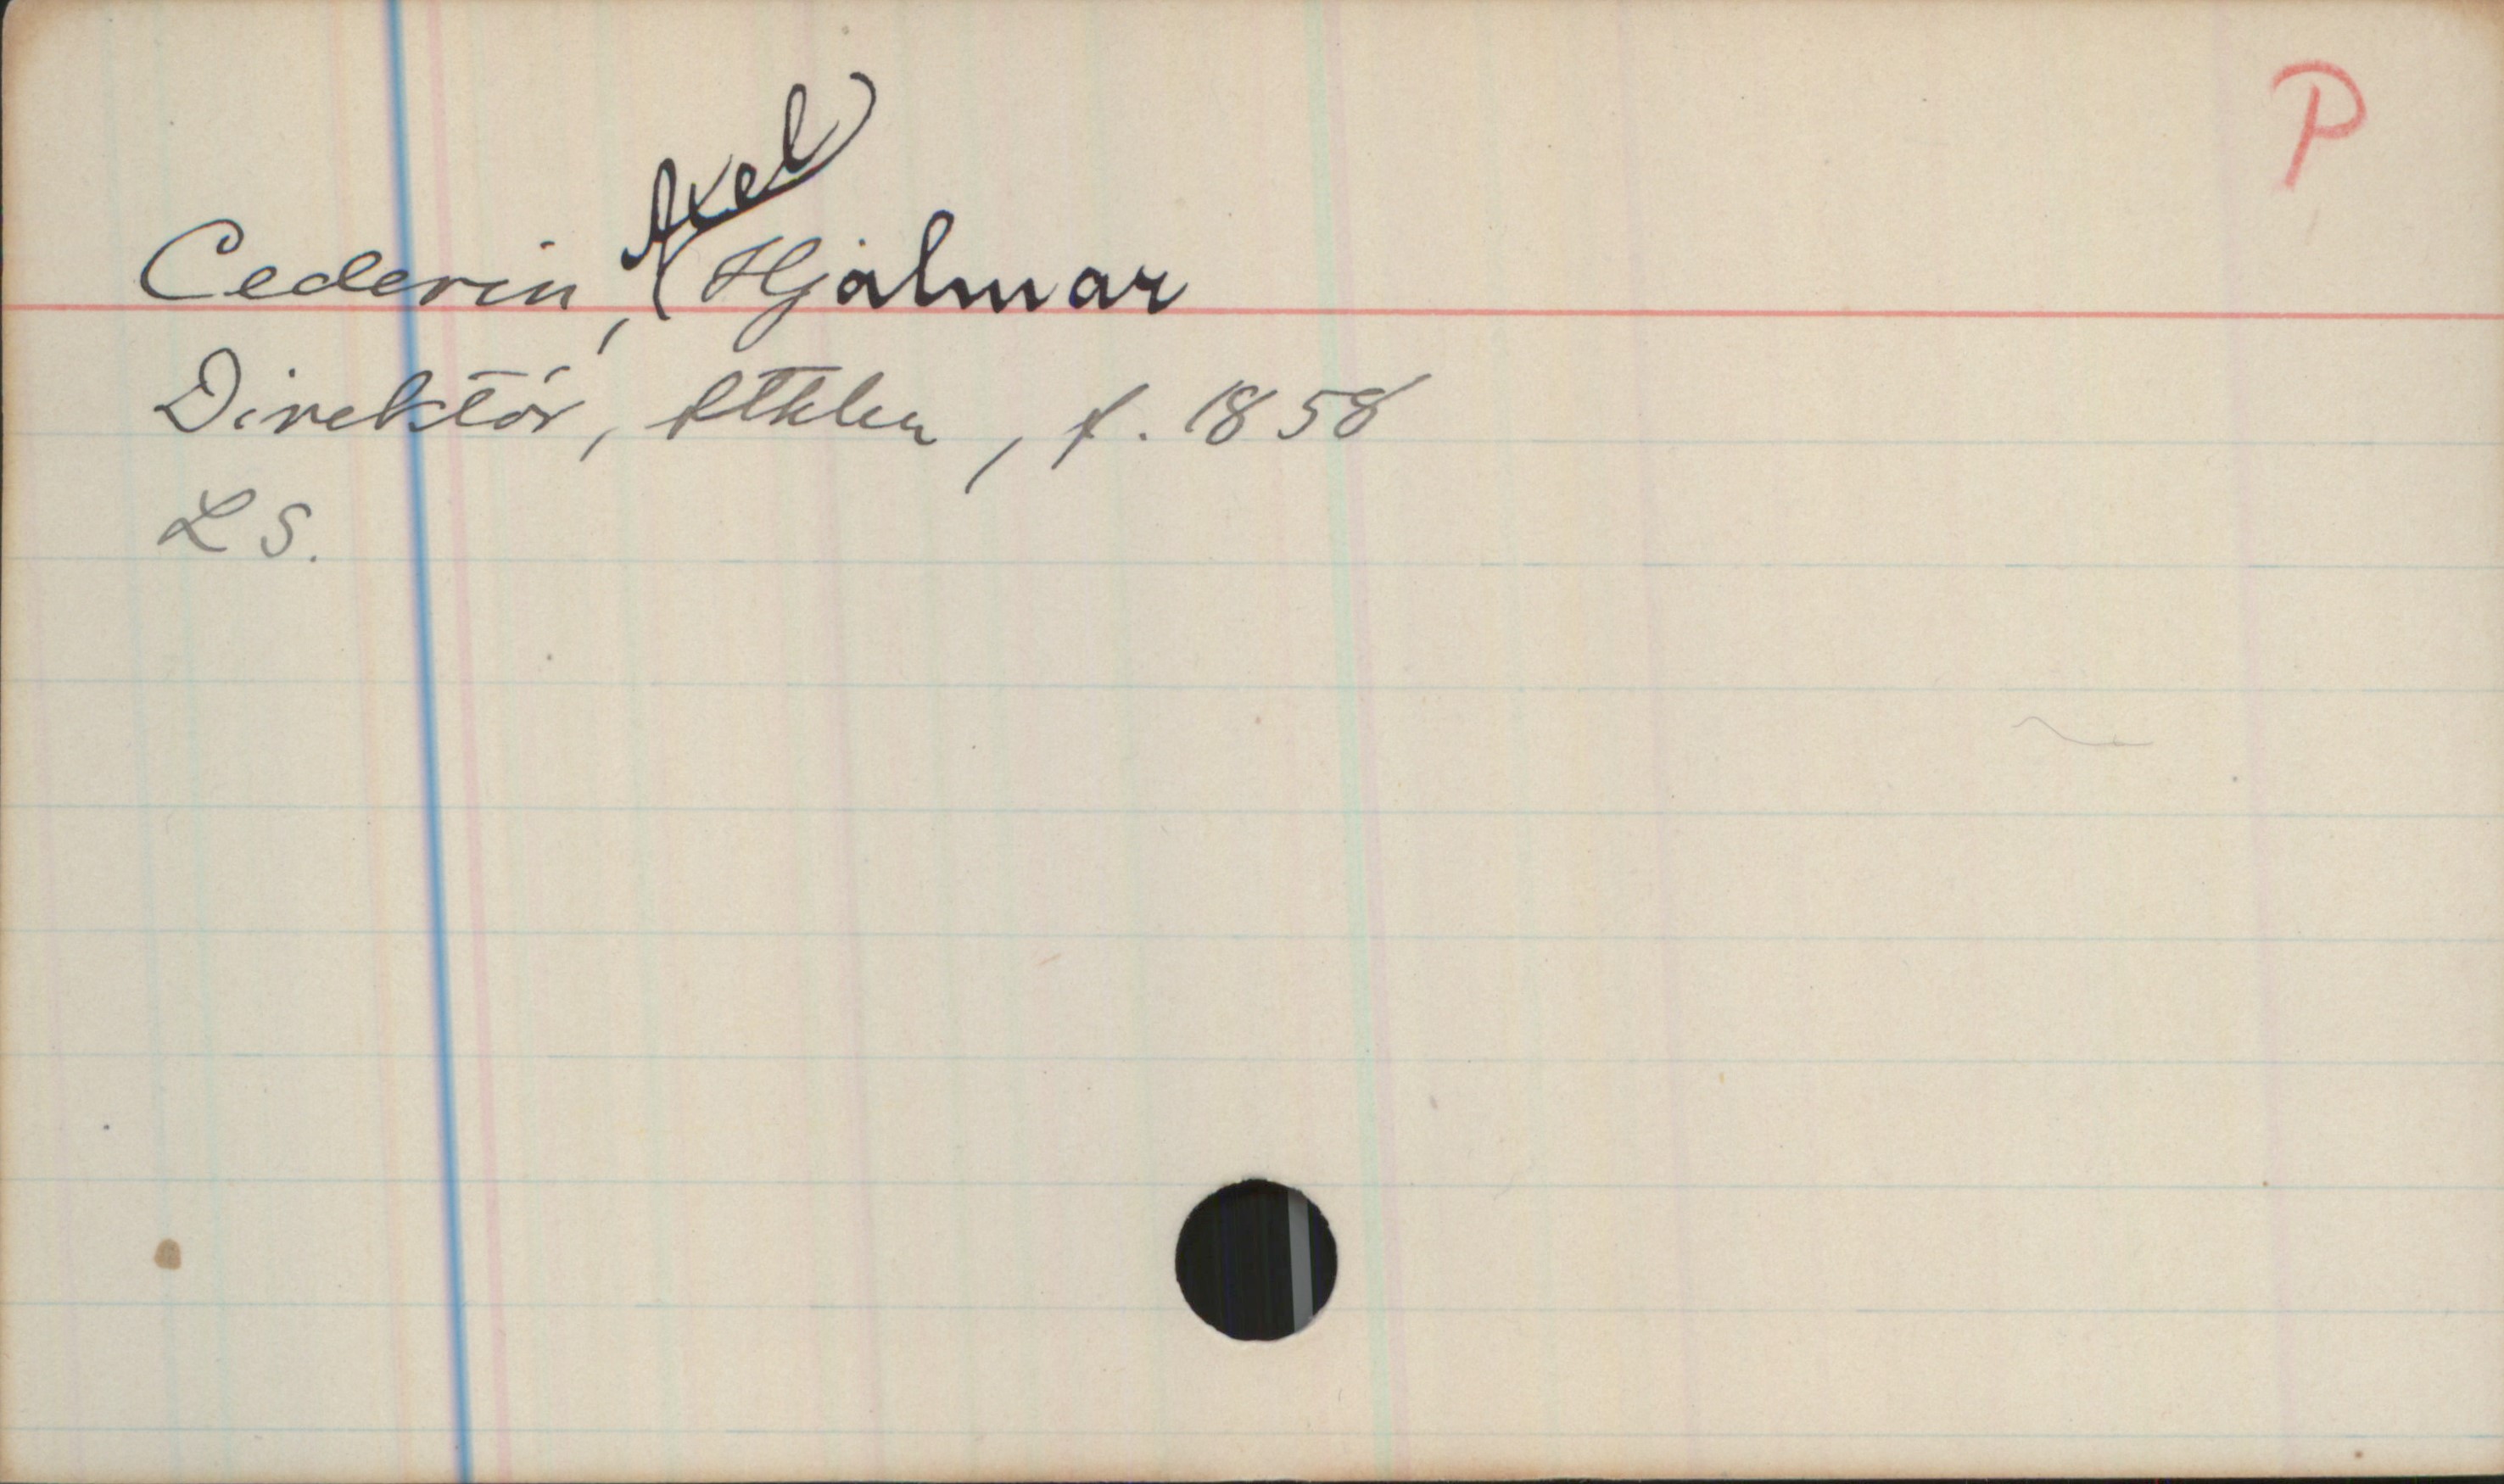 P
Cederin, Axel Hjalmar
Direktör, Sthlm, f. 1858
L S.